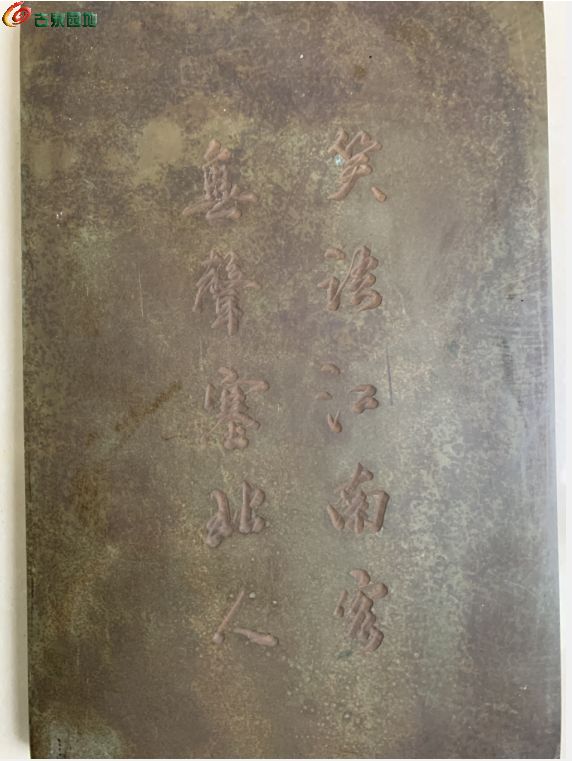 古泉园地
笑語江南客
無聲塞北人